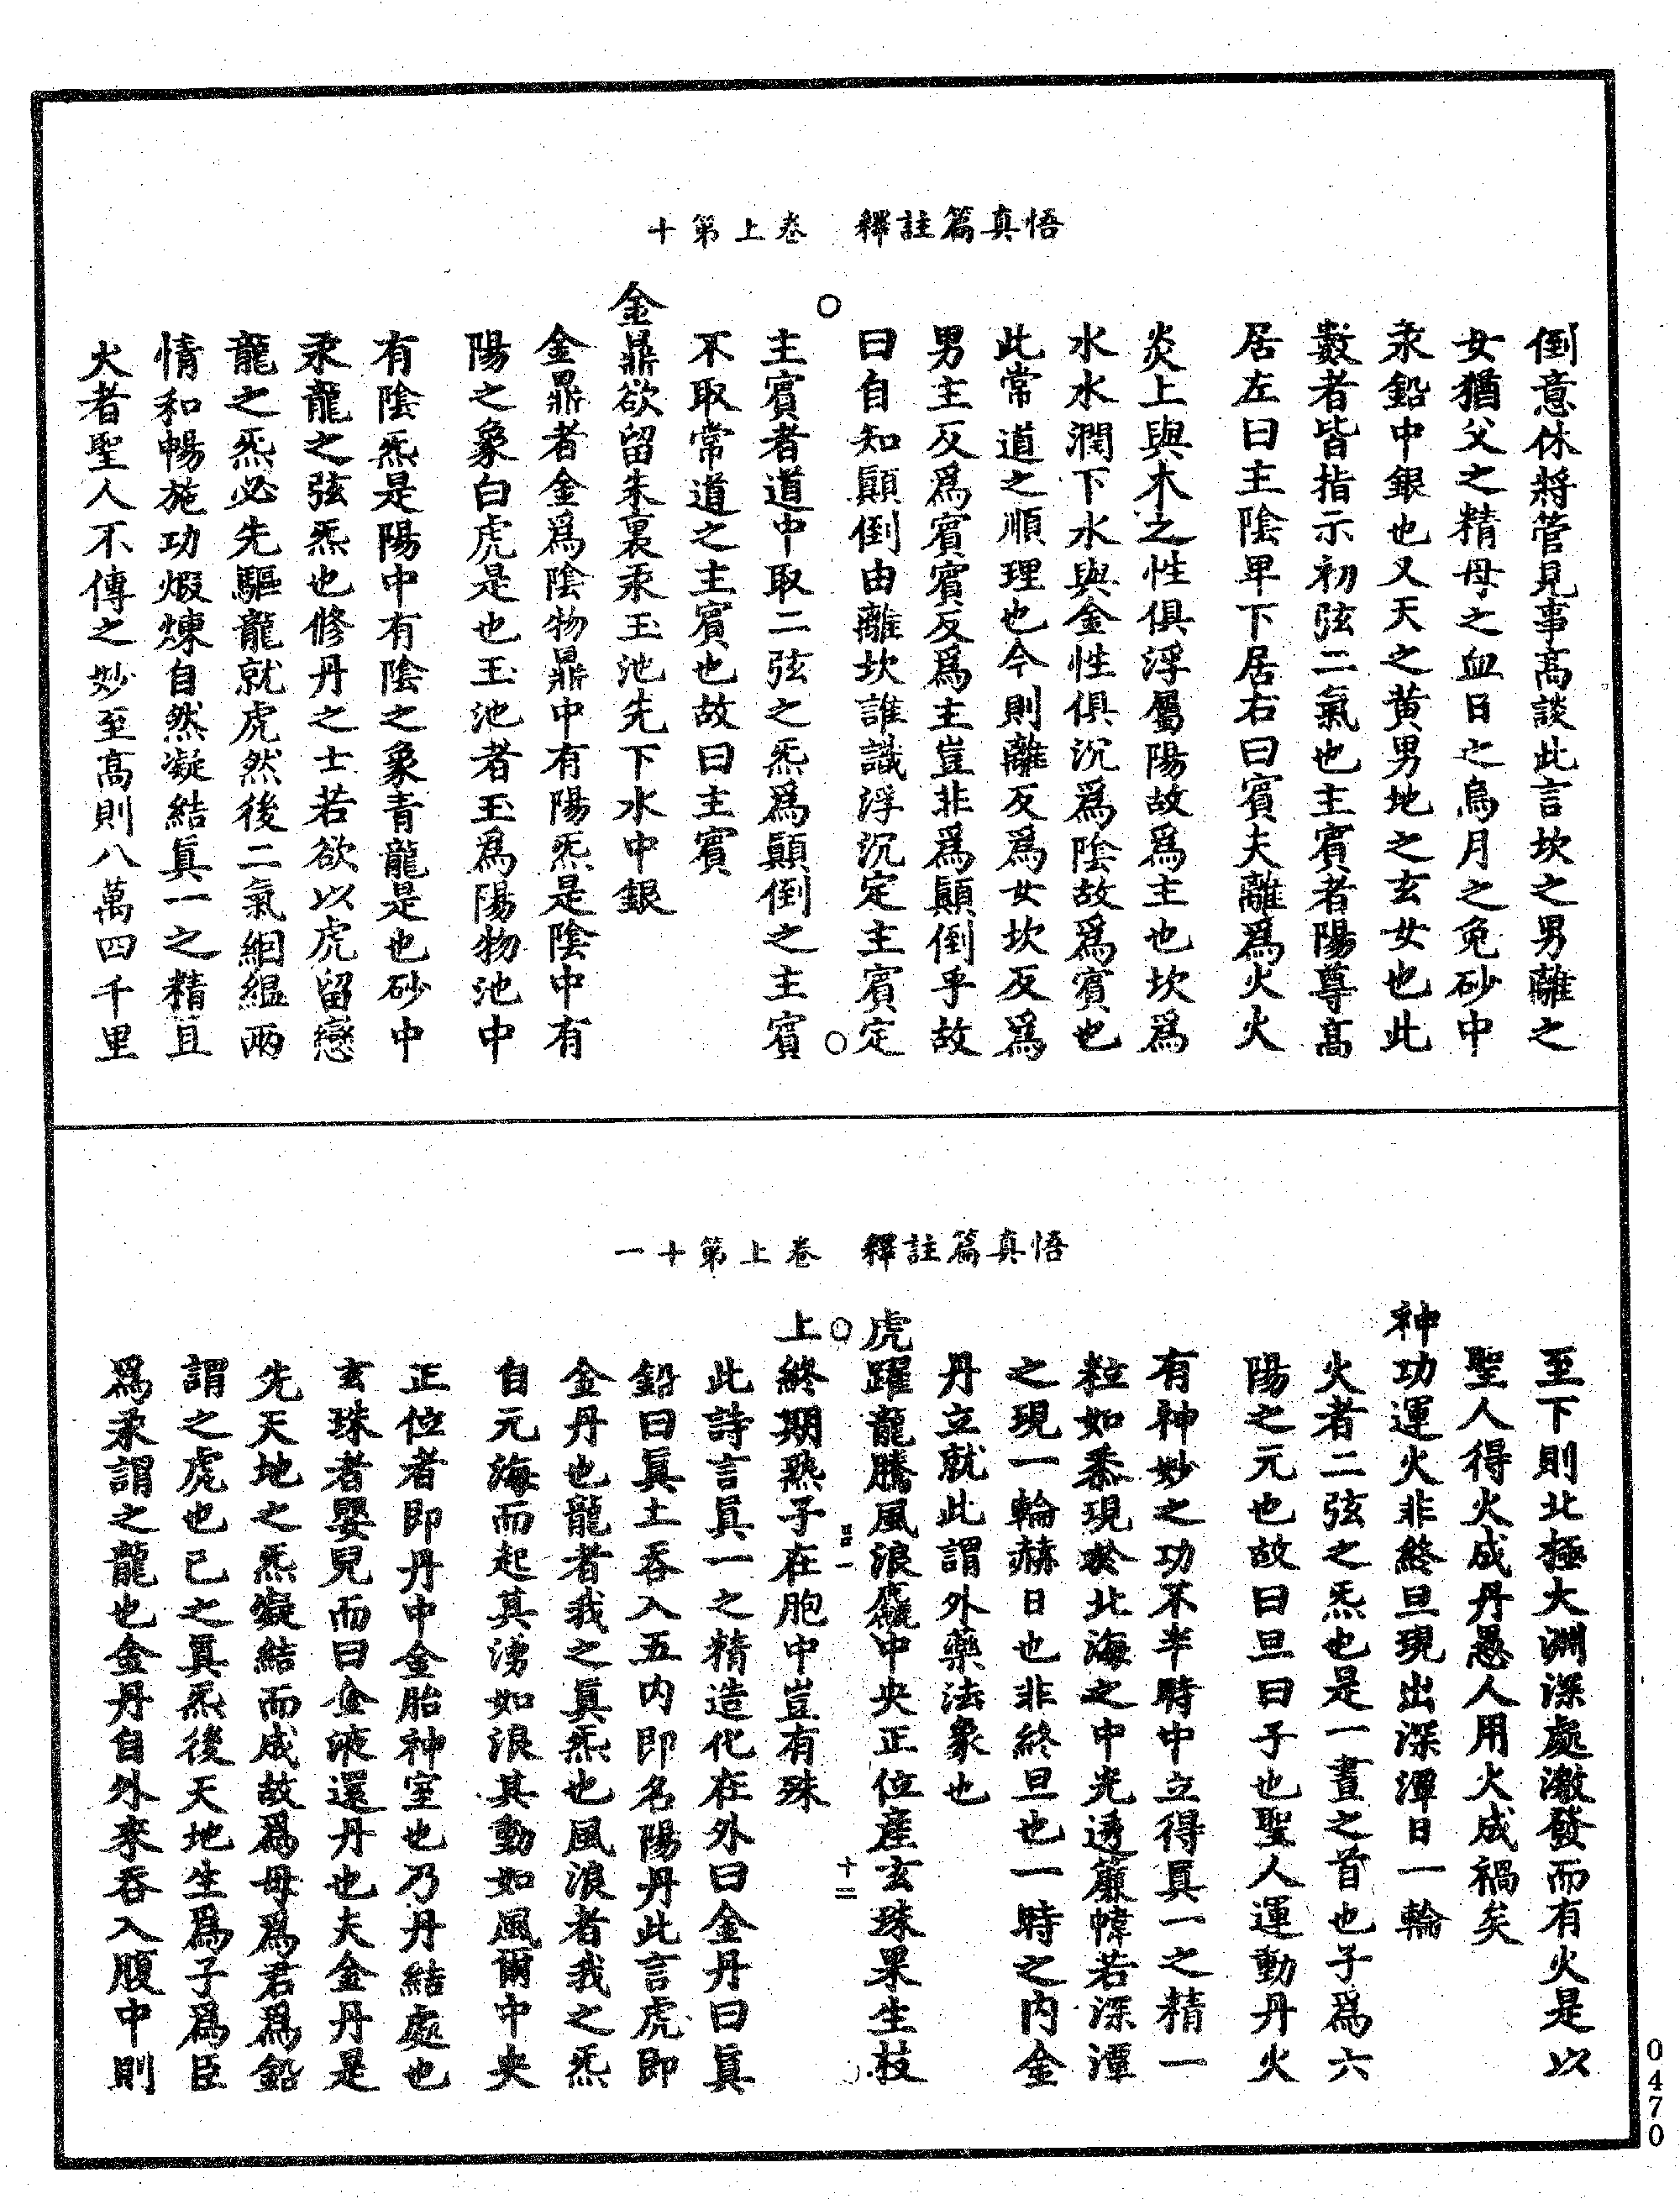 悟真篇註釋　卷上第十
倒意休將管見事高談此言坎之男離之
女猶父之精母之血日之烏月之兔砂中
汞鉛中銀也又天之黄男地之玄女也此
數者皆指示初弦二氣也主賓者陽尊高
居左曰主陰卑下居右曰賓夫離爲火火
炎上與木之性俱浮屬陽故爲主也坎爲
水水潤下水與金性俱沉爲陰故爲賓也
此常道之順理也今則離反爲女坎反爲
男主反爲賓賓反爲主豈非爲顚倒乎故
曰自知顚倒由離坎誰識浮沉定主賓定
主賓者道中取二弦之炁爲顚倒之主賓
不取常道之主賓也故曰主賓
金鼎欲留朱裏汞玉池先下水中銀
金鼎者金爲陰物鼎中有陽炁是陰中有
陽之象白虎是也玉池者玉爲陽物池中
有陰炁是陽中有陰之象青龍是也砂中
汞龍之弦炁也修丹之士若欲以虎留戀
龍之炁必先驅龍就虎然後二氣絪縕兩
情和暢施功煅煉自然凝結眞一之精且
火者聖人不傳之妙至高則八萬四千里
悟真篇註釋　卷上第十一
至下則北極大淵深處激發而有火是以
聖人得火成丹愚人用火成禍矣
神功運火非終旦現出深潭日一輪
火者二弦之炁也是一晝之首也子爲六
陽之元也故曰旦曰子也聖人運動丹火
有神妙之功不半時中立得眞一之精一
粒如黍現於北海之中光透簾幃若深潭
之現一輪赫日也非終旦也一時之內金
丹立就此謂外藥法象也
虎躍龍騰風浪麄中央正位產玄珠果生枝
十二
上終期熟子在胞中豈有殊
此詩言眞一之精造化在外曰金丹曰眞
鉛曰眞土吞入五內即名陽丹此言虎即
金丹也龍者我之眞炁也風浪者我之炁
自元海而起其湧如浪其動如風爾中央
正位者即丹中金胎神室也乃丹結處也
玄珠者嬰兒而曰金液還丹也夫金丹是
先天地之炁凝結而成故爲母爲君爲鉛
謂之虎也已之眞炁後天地生爲子爲臣
爲汞謂之龍也金丹自外來吞入腹中則
0470